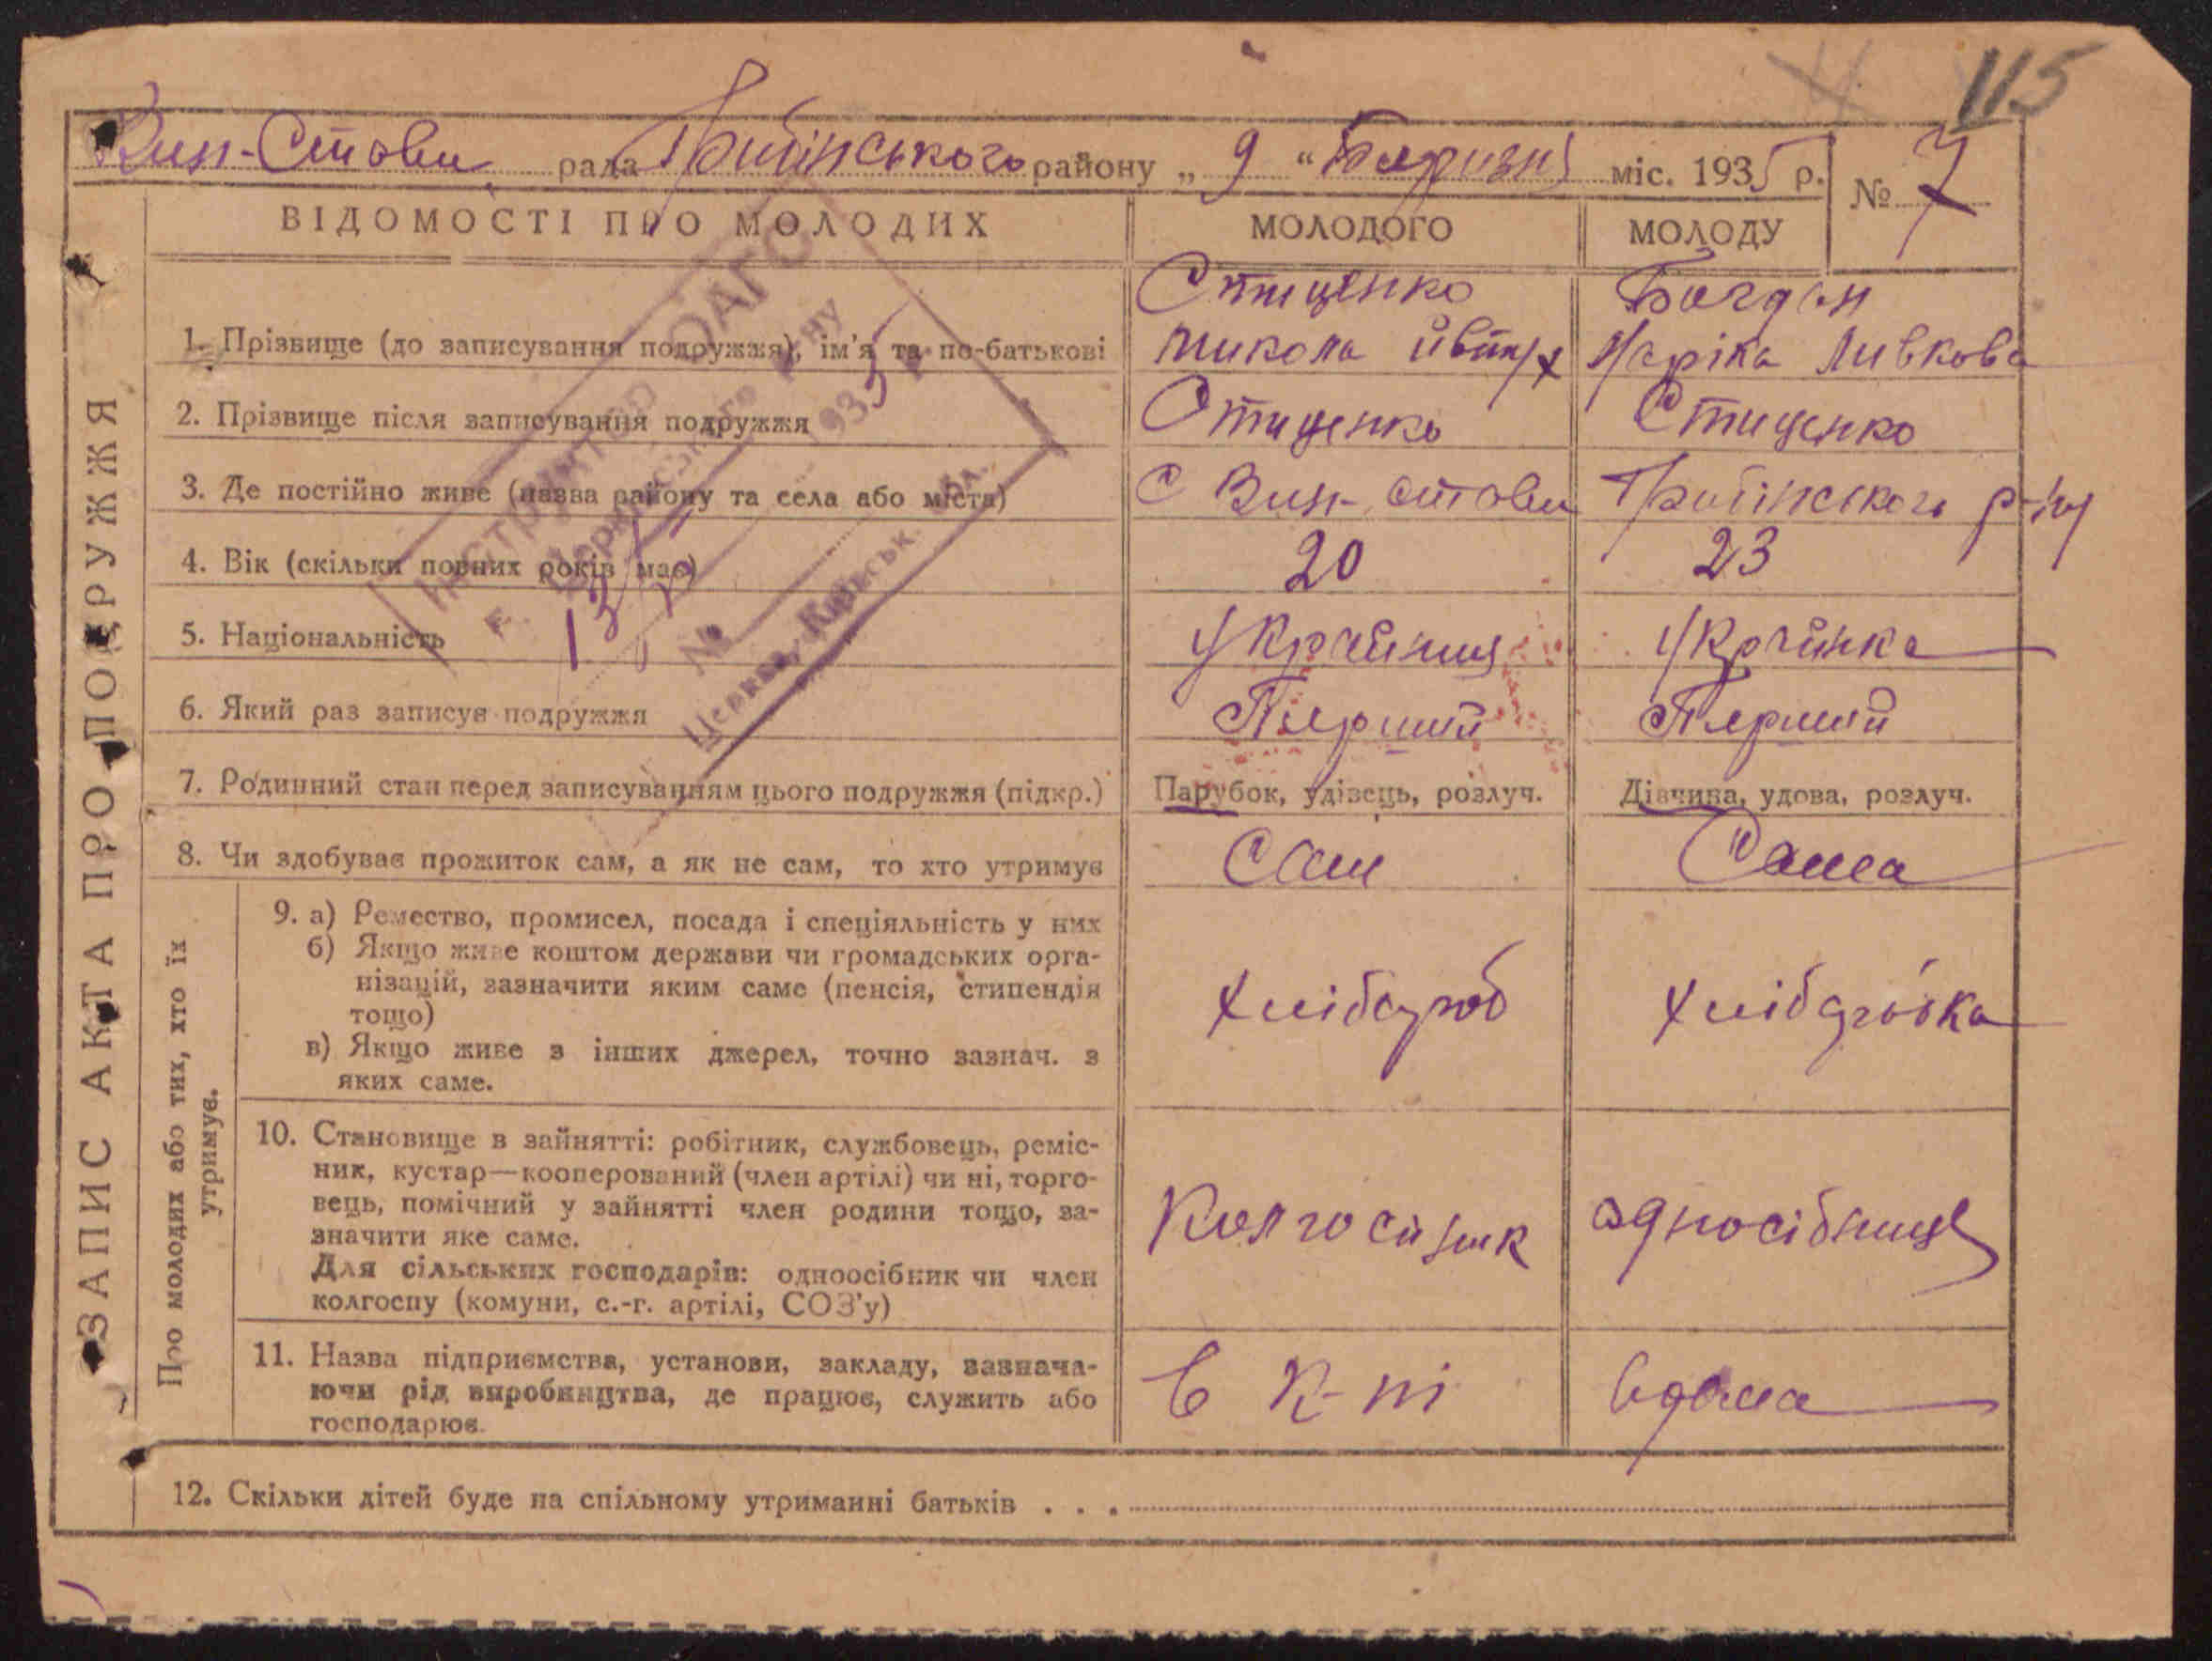 115
Вин-Стави рада району „ 9 “ Березня міс. 1935 р. № 7
ЗАПИС АКТА ПРО ПОДРУЖЖЯ
ВІДОМОСТІ ПРО МОЛОДИХ МОЛОДОГО МОЛОДУ
Стиценко Богдан
1. Прізвище (до записування подружжя), ім'я та по-батькові Микола Марійка
2. Прізвище після записування подружжя Стиценко Стиценко
3. Де постійно живе (назва району та села або міста) С Вин-Стави р-ну
4. Вік (скільки повних років має) 20 23
5. Національність Українець Українка
6. Який раз записує подружжя Перший Перший
7. Родинний стан перед записуванням цього подружжя (підкр.) Парубок, удівець, розлуч. Дівчина, удова, розлуч.
8. Чи здобуває прожиток сам, а як не сам, то хто утримує Сам Сама
Про молодих або тих, хто їх
утримує.
9. а) Ремество, промисел, посада і спеціяльність у них
б) Якщо живе коштом держави чи громадських орга-
нізацій, зазначити яким саме (пенсія, стипендія
тощо)
Хлібороб Хліборобка
в) Якщо живе з інших джерел, точно зазнач. з
яких саме.
10. Становище в зайнятті: робітник, службовець, реміс-
ник, кустар—кооперований (член артілі) чи ні, торго-
вець, помічний у зайнятті член родини тощо, за-
значити яке саме.
Колгоспник односібниця
Для сільських господарів: одноосібник чи член
колгоспу (комуни, с.-г. артілі, СОЗ'у)
11. Назва підприємства, установи, закладу, зазнача-
ючи рід виробництва, де працює, служить або
господарює.
в к-пі вдома
12. Скільки дітей буде на спільному утриманні батьків . . .
Інструктор ЮАГС
1935 р.
13
№
Київськ. обл.